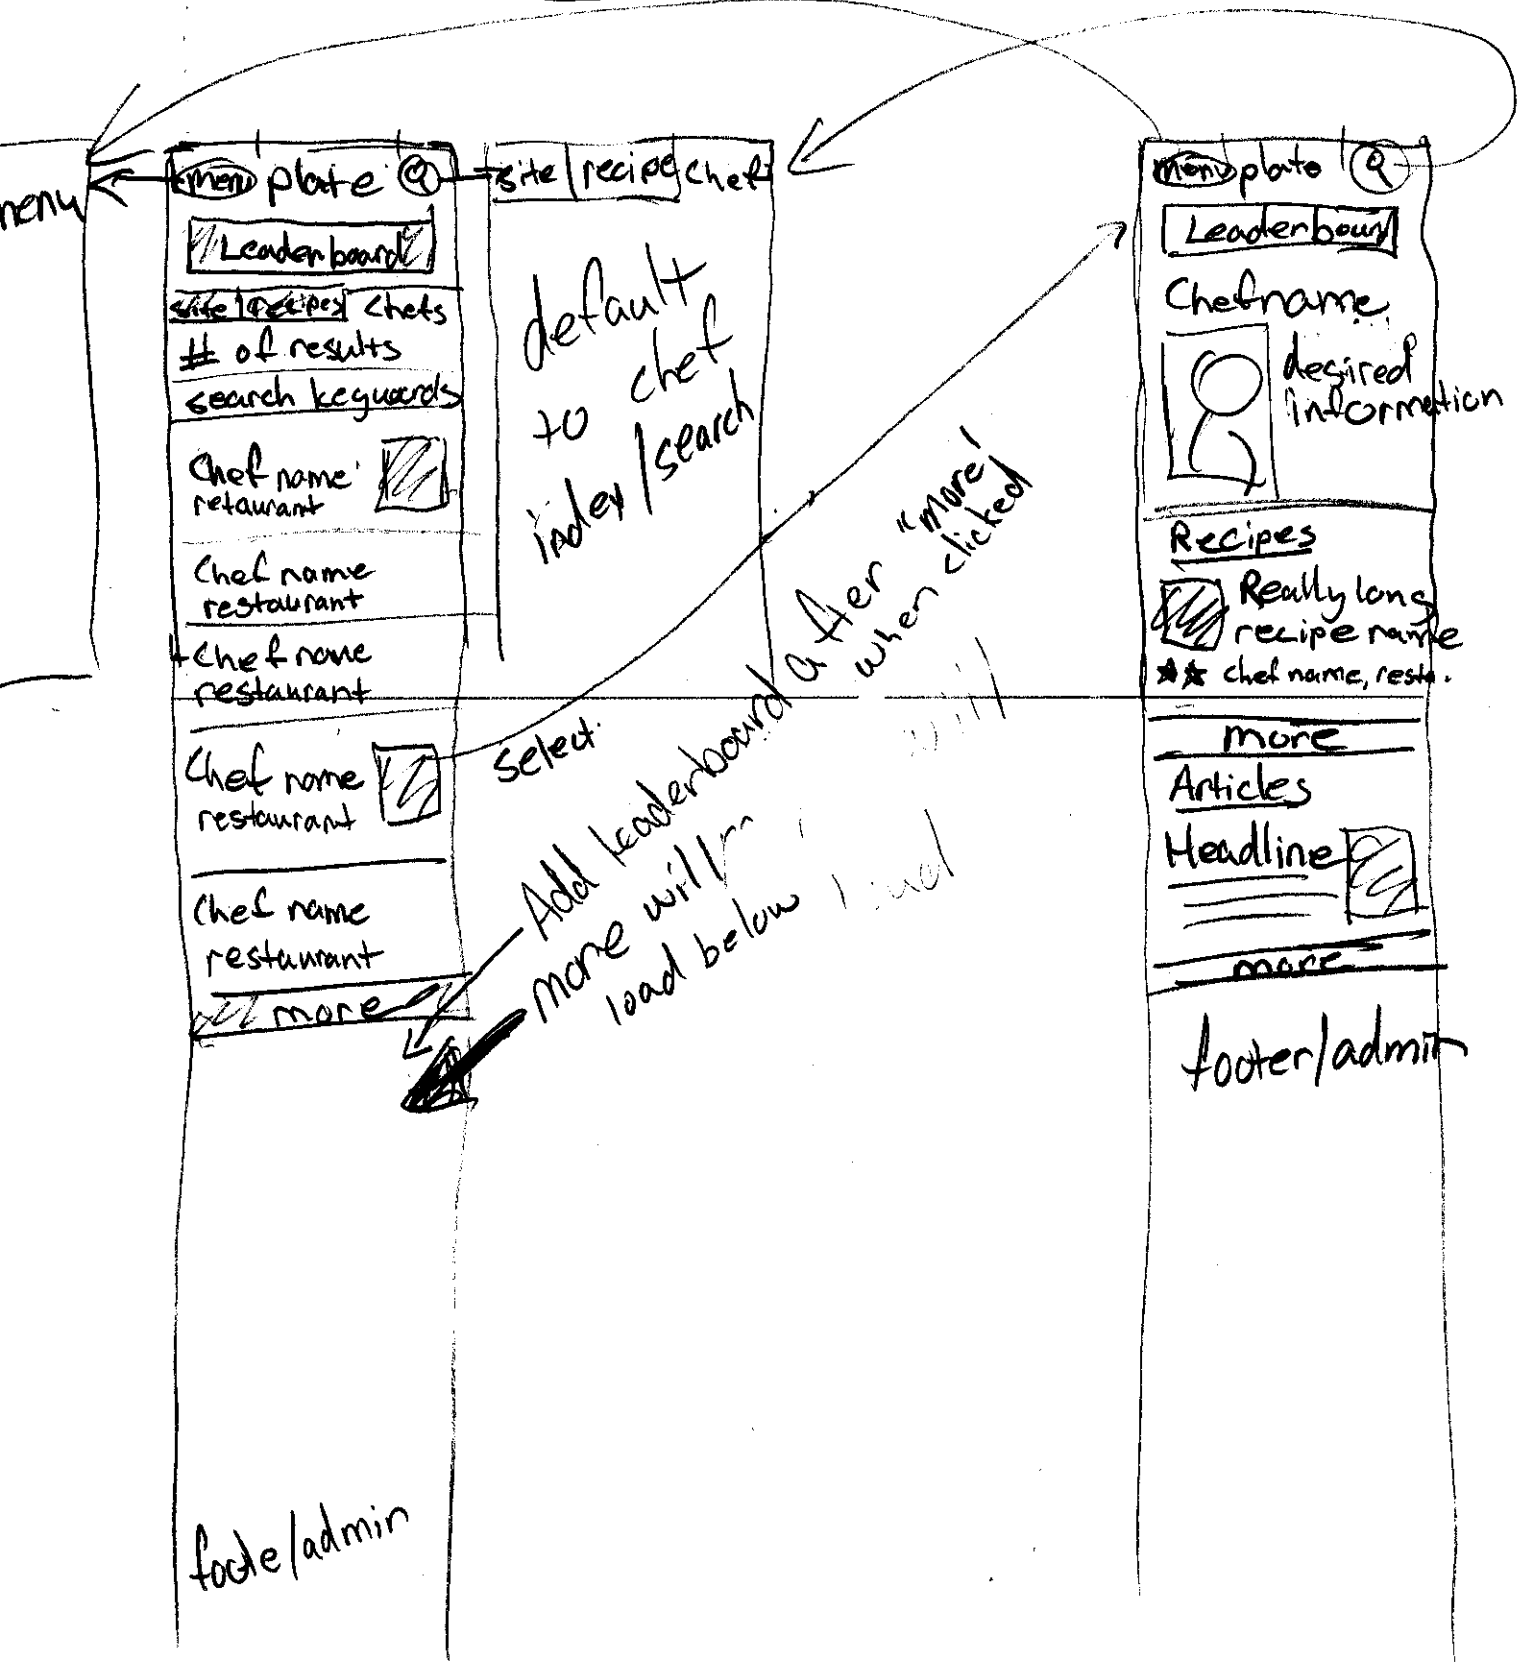 menu
menu plate
Leaderboard
site recipes chefs
# of results
search keywords
Chef name
retaurant
Chef name
restaurant
Chef name
restaurant
Chef name
restaurant
Chef name
restaurant
more
foote/admin
site recipe chef
default
to chef
index/search
select.
Add leaderboard after "more"
when clicked
more will
load below
will
load
menu plate
Leaderboard
Chefname
desired
information
Recipes
Really long
recipe name
★★ chef name, resta.
more
Articles
Headline
more
footer/admin